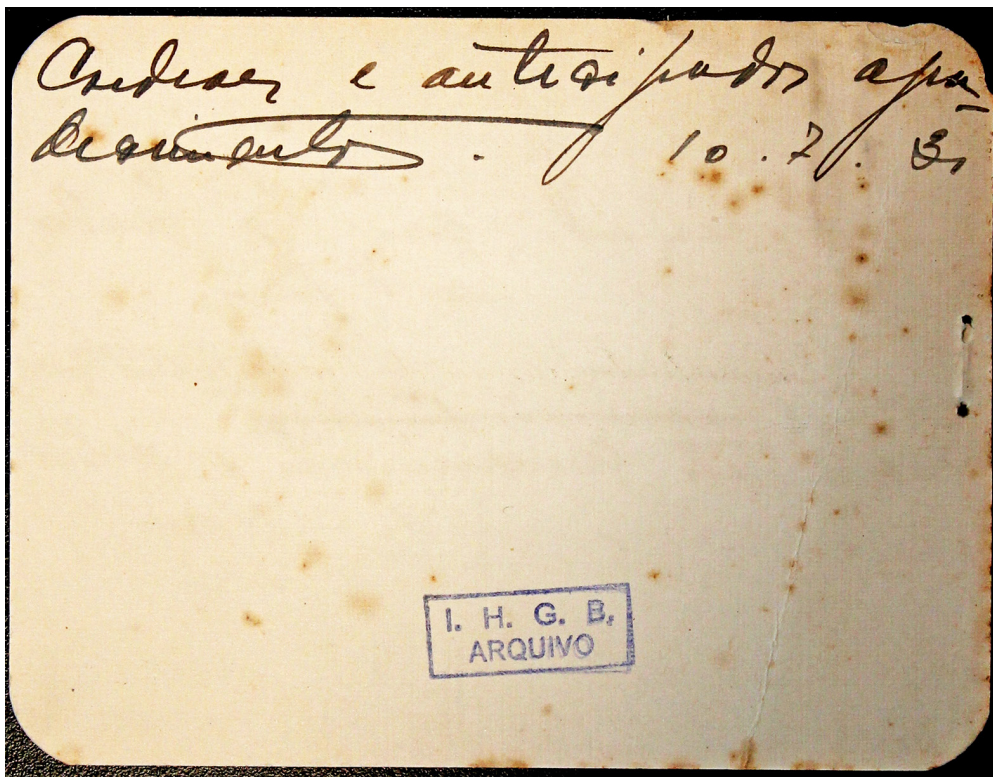 Cordiaes e antecipados agra-
decimentos. 10.7.31
I. H. G. B.
ARQUIVO